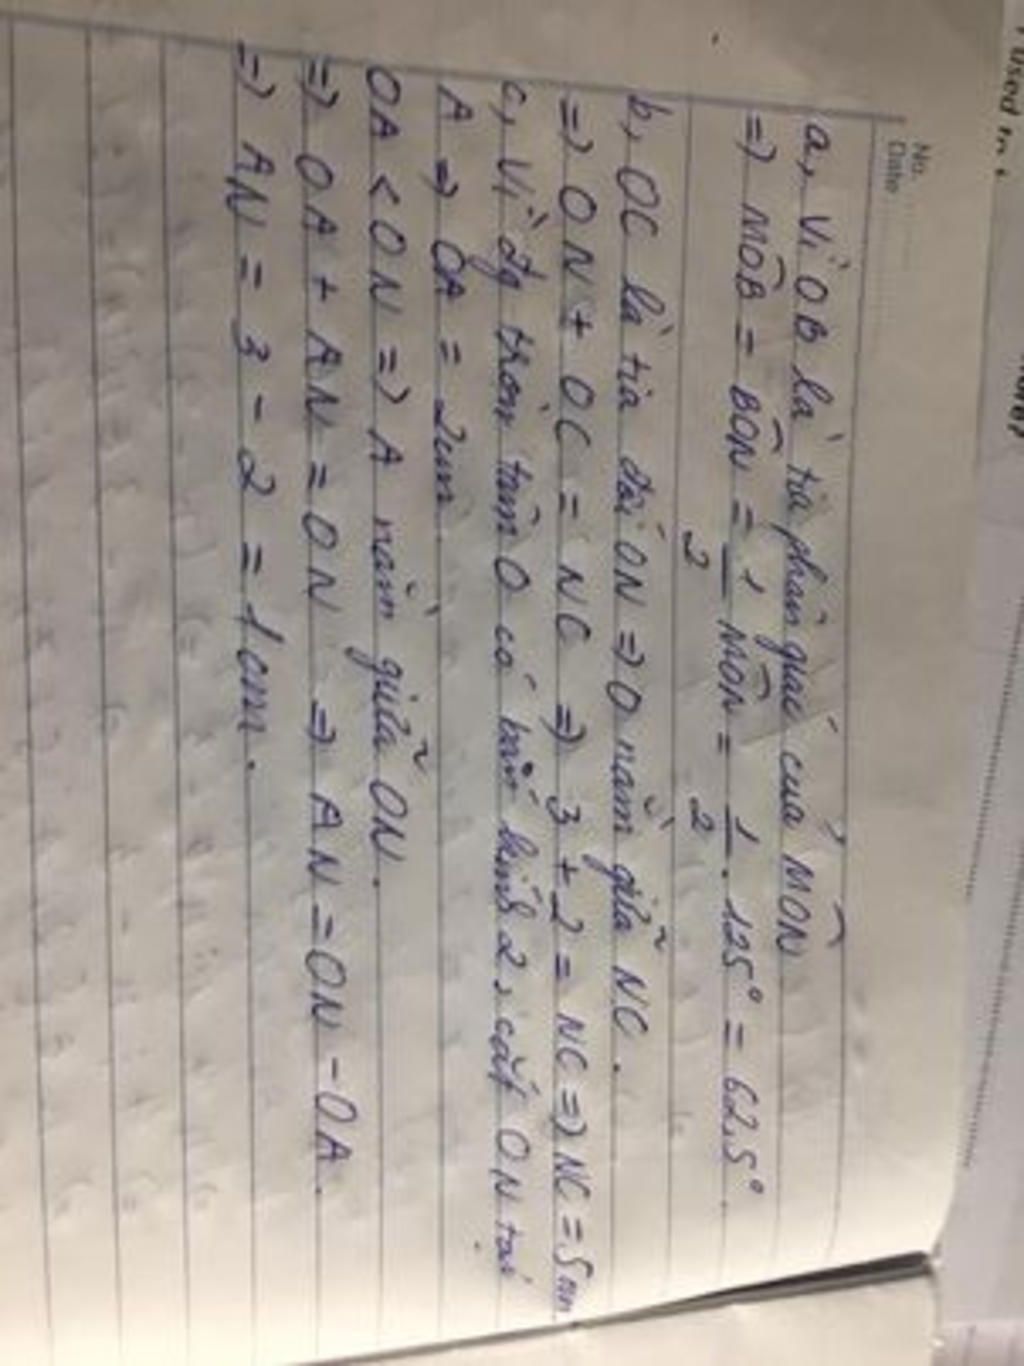 No.
Date
a, Vì OB là tia phân giác của MÔN
=> MÔB = BÔN = 1/2 MÔN = 1/2 . 125° = 62,5°.
b, OC là tia đối ON => O nằm giữa NC.
=> ON + OC = NC => 3 + 2 = NC => NC = 5cm
c, Vì đg tròn tâm O có bán kính 2, cắt ON tại
A => OA = 2cm.
OA < ON => A nằm giữa ON.
=> OA + AN = ON => AN = ON - OA.
=> AN = 3 - 2 = 1cm.